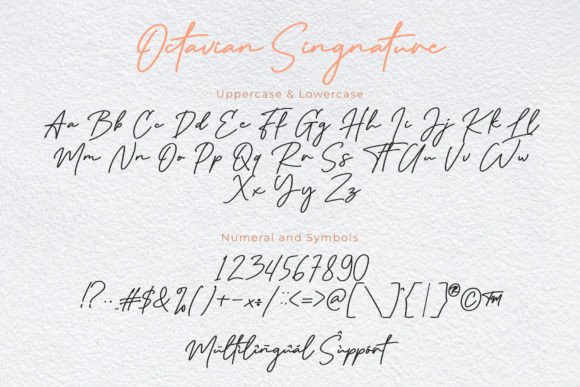 Octavian Singnature
Uppercase & Lowercase
Aa Bb Cc Dd Ee Ff Gg Hh Ii Jj Kk Ll
Mm Nn Oo Pp Qq Rr Ss Tt Uu Vv Ww
Xx Yy Zz
Numeral and Symbols
1234567890
!?:..#$&%()+-x÷/:;<=>@[\]{|}®©™
Mültilïngûâl Sûppört